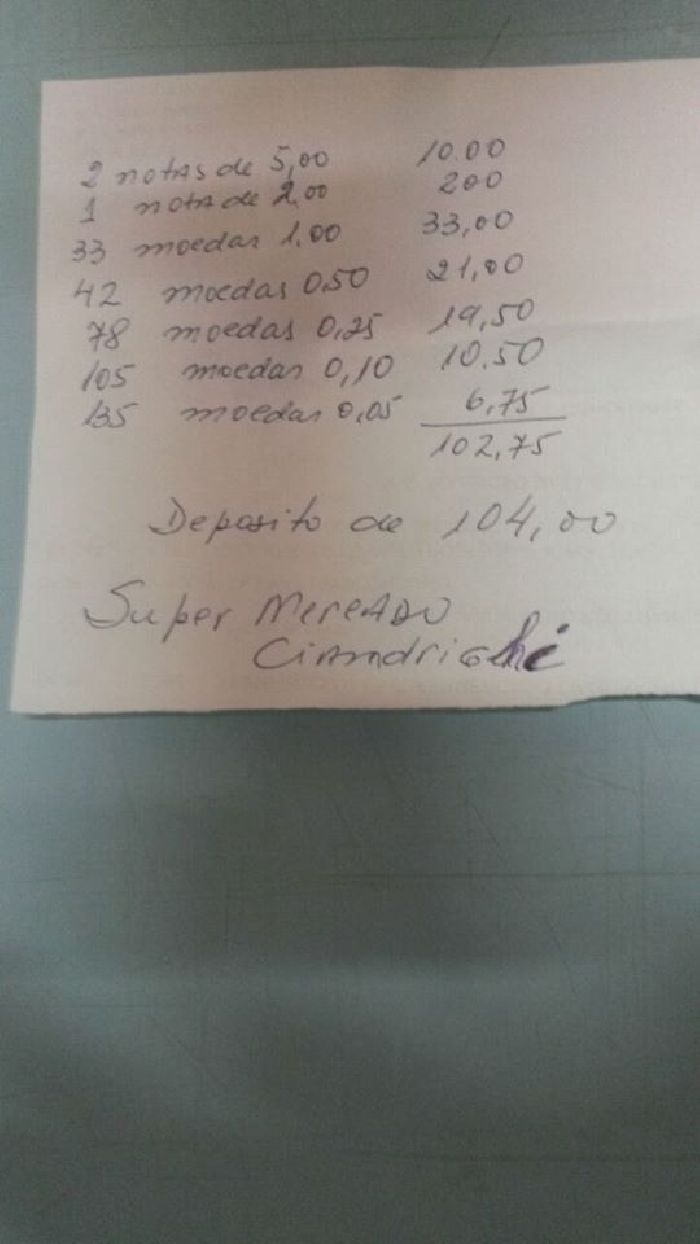 2 notas de 5,00 10.00
1 nota de 2,00 200
33 moedas 1.00 33,00
42 moedas 0,50 21,00
78 moedas 0,25 19,50
105 moedas 0,10 10.50
135 moedas 0,05 6,75
102,75
Deposito de 104,00
Super Mercado